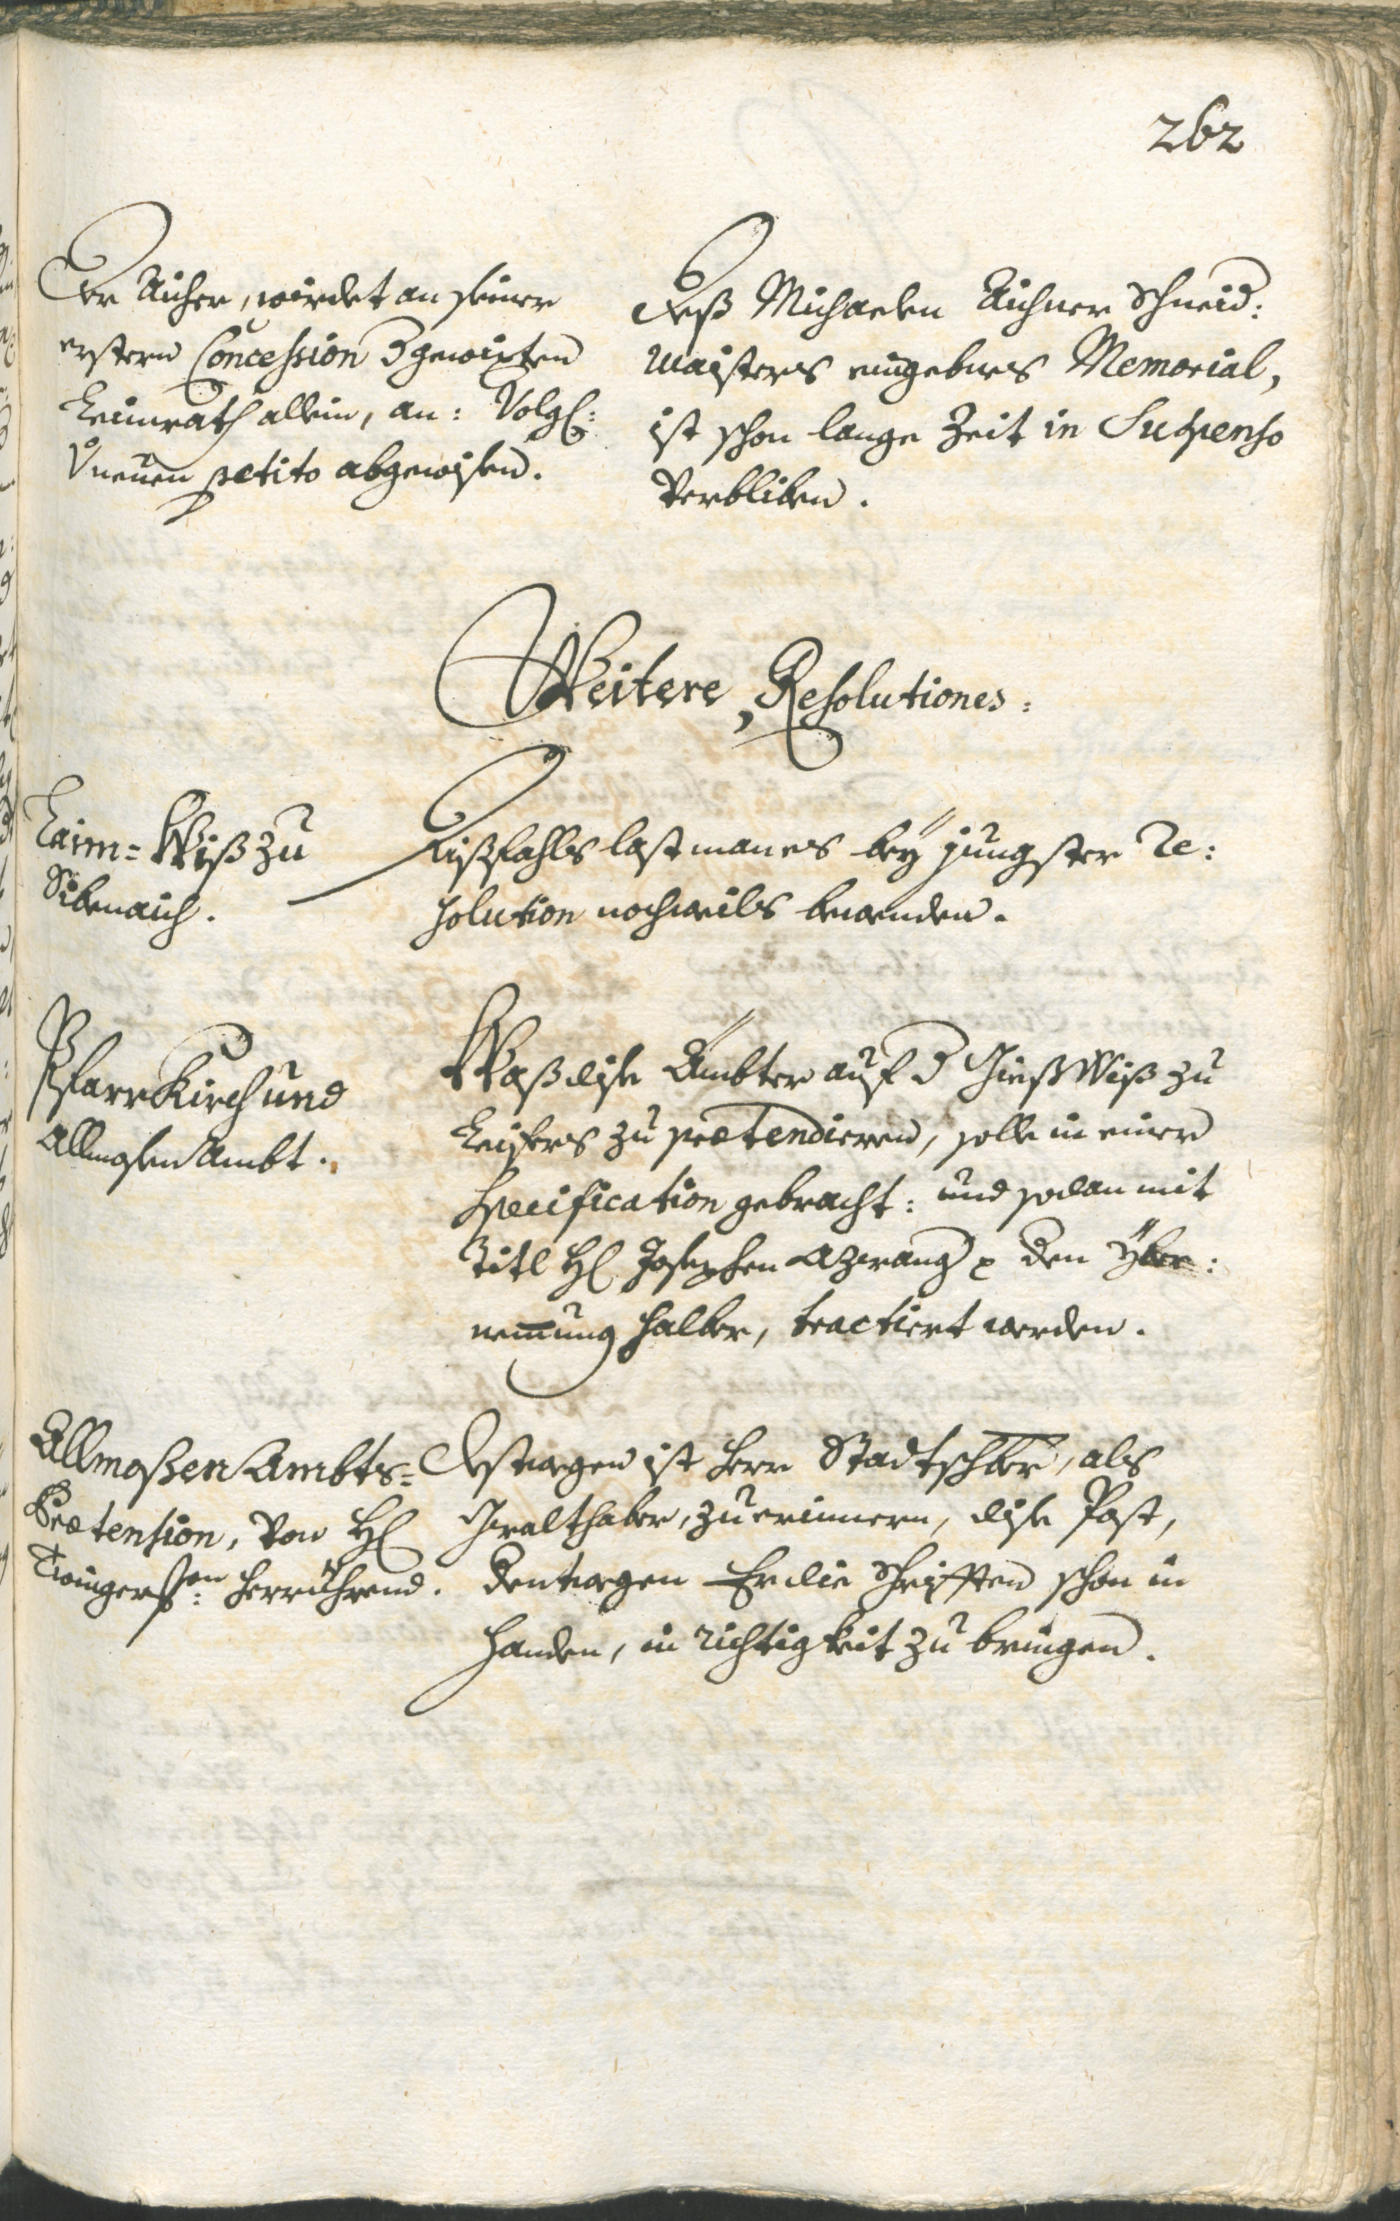 262
Der Aicher, wirdet an seiner
erstern Concession d gewixten
Leinwath allein, an: Volgl:
Vneuen petito abgewisen.
Deß Michaelen Aichner Schneid:
Maisters eingebnes Memorial,
ist schon lange Zeit in Suspenso
Verbliben.
Weitere Resolutiones:
Laim=Wiß zu
Sibenaich.
Dißfahls last man es bey jungster Re:
solution nochmals bewenden.
Pfarr Kirch und
Allmosen Ambt.
Waß dise Ämbter auf d Wiß zu
zu prætendieren, solle in einer
Specification gebracht: und sodan mit
Titl H Josephen den yber:
nemung halber, tractiert werden.
Allmoßen Ambts=
Prætension, Von H
herrührend.
Destwegen ist Herr Stadtschbr, als
Gwalthaber, zu erinnern, dise Post,
dentwegen Er die Schrifften schon in
Handen, in richtigkeit zu bringen.